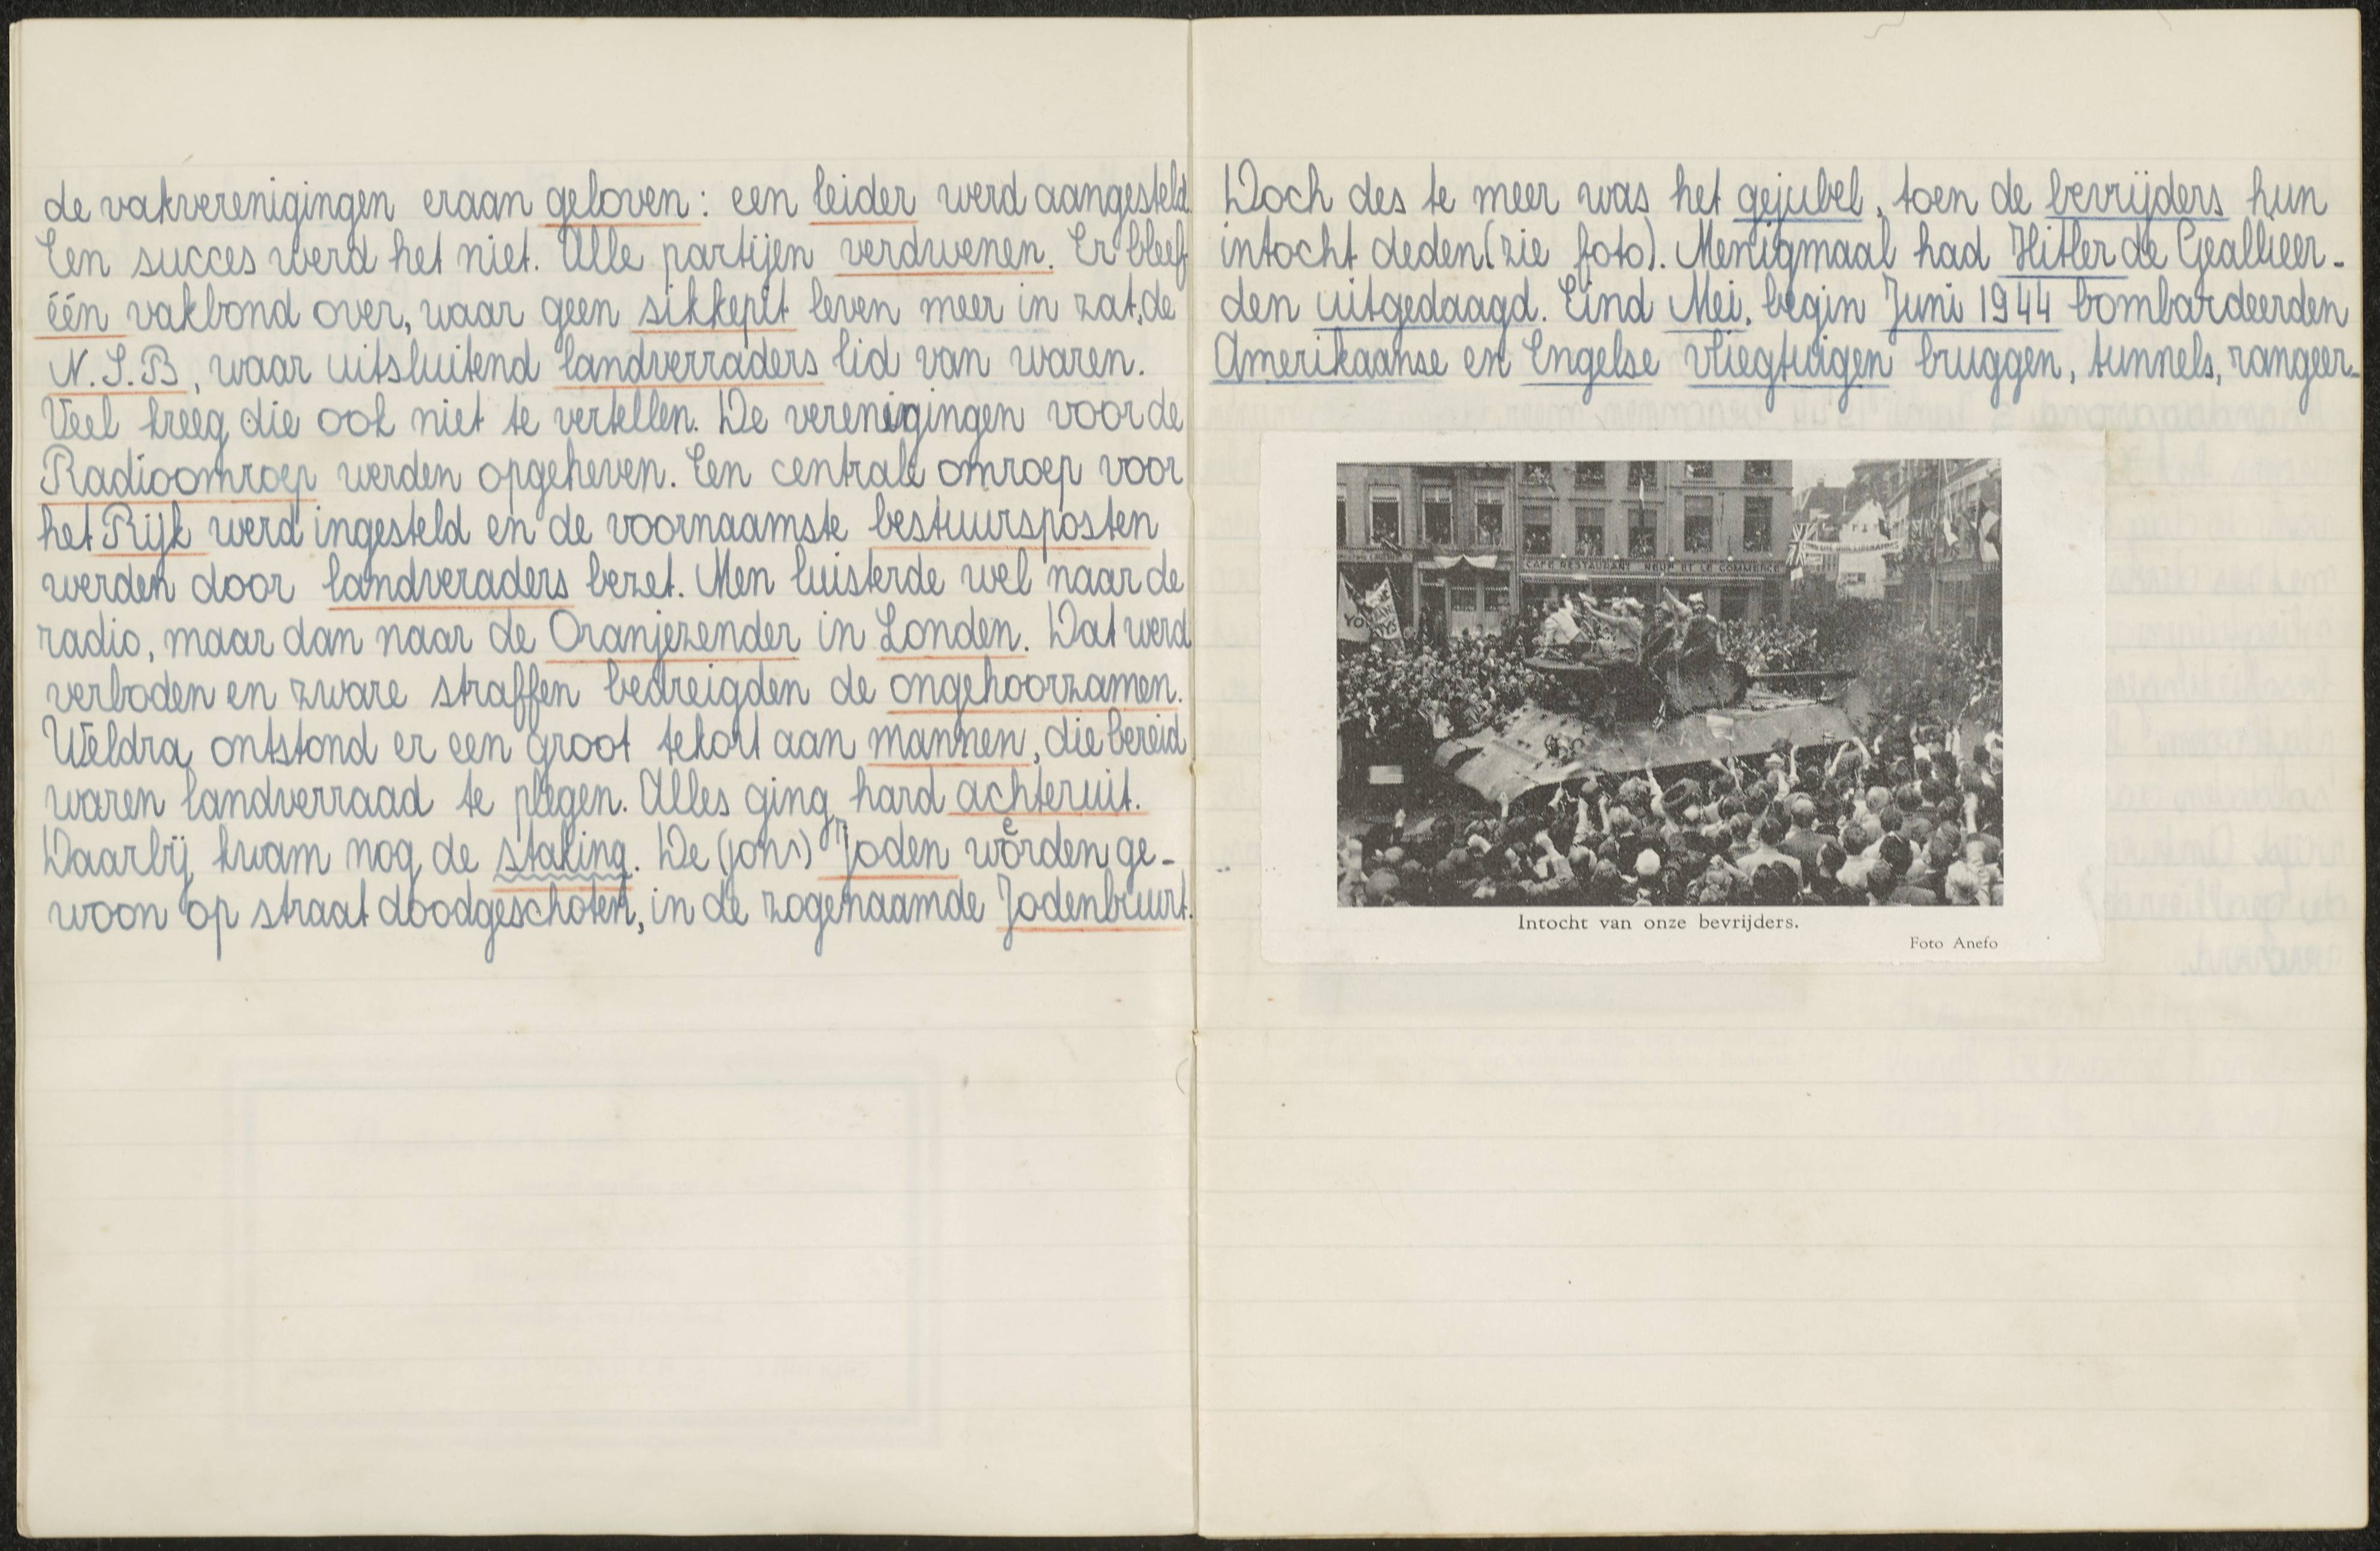 de vakverenigingen eraan geloven: een leider werd aangesteld.
Een succes werd het niet. Alle partijen verdwenen. Er bleef
één vakbond over, waar geen sikkepit leven meer in zat, de
N.S.B, waar uitsluitend landverraders lid van waren.
Veel kreeg die ook niet te vertellen. De verenigingen voor de
Radioomroep werden opgeheven. Een centrale omroep voor
het Rijk werd ingesteld en de voornaamste bestuursposten
werden door landveraders bezet. Men luisterde wel naar de
radio, maar dan naar de Oranjezender in Londen. Dat werd
verboden en zware straffen bedreigden de ongehoorzamen.
Weldra ontstond er een groot tekort aan mannen, die bereid
waren landverraad te plegen. Alles ging hard achteruit.
Daarbij kwam nog de staking. De Joden worden ge-
woon op straat doodgeschoten, in de zogenaamde Jodenbuurt.
Doch des te meer was het gejubel, toen de bevrijders hun
intocht deden (zie foto). Menigmaal had Hitler de Geallieer-
den uitgedaagd. Eind Mei, begin Juni 1944 bombardeerden
Amerikaanse en Engelse vliegtuigen bruggen, tunnels, rangeer-
CAFE RESTAURANT NEUF ET LE COMMERCE
Intocht van onze bevrijders.
Foto Anefo